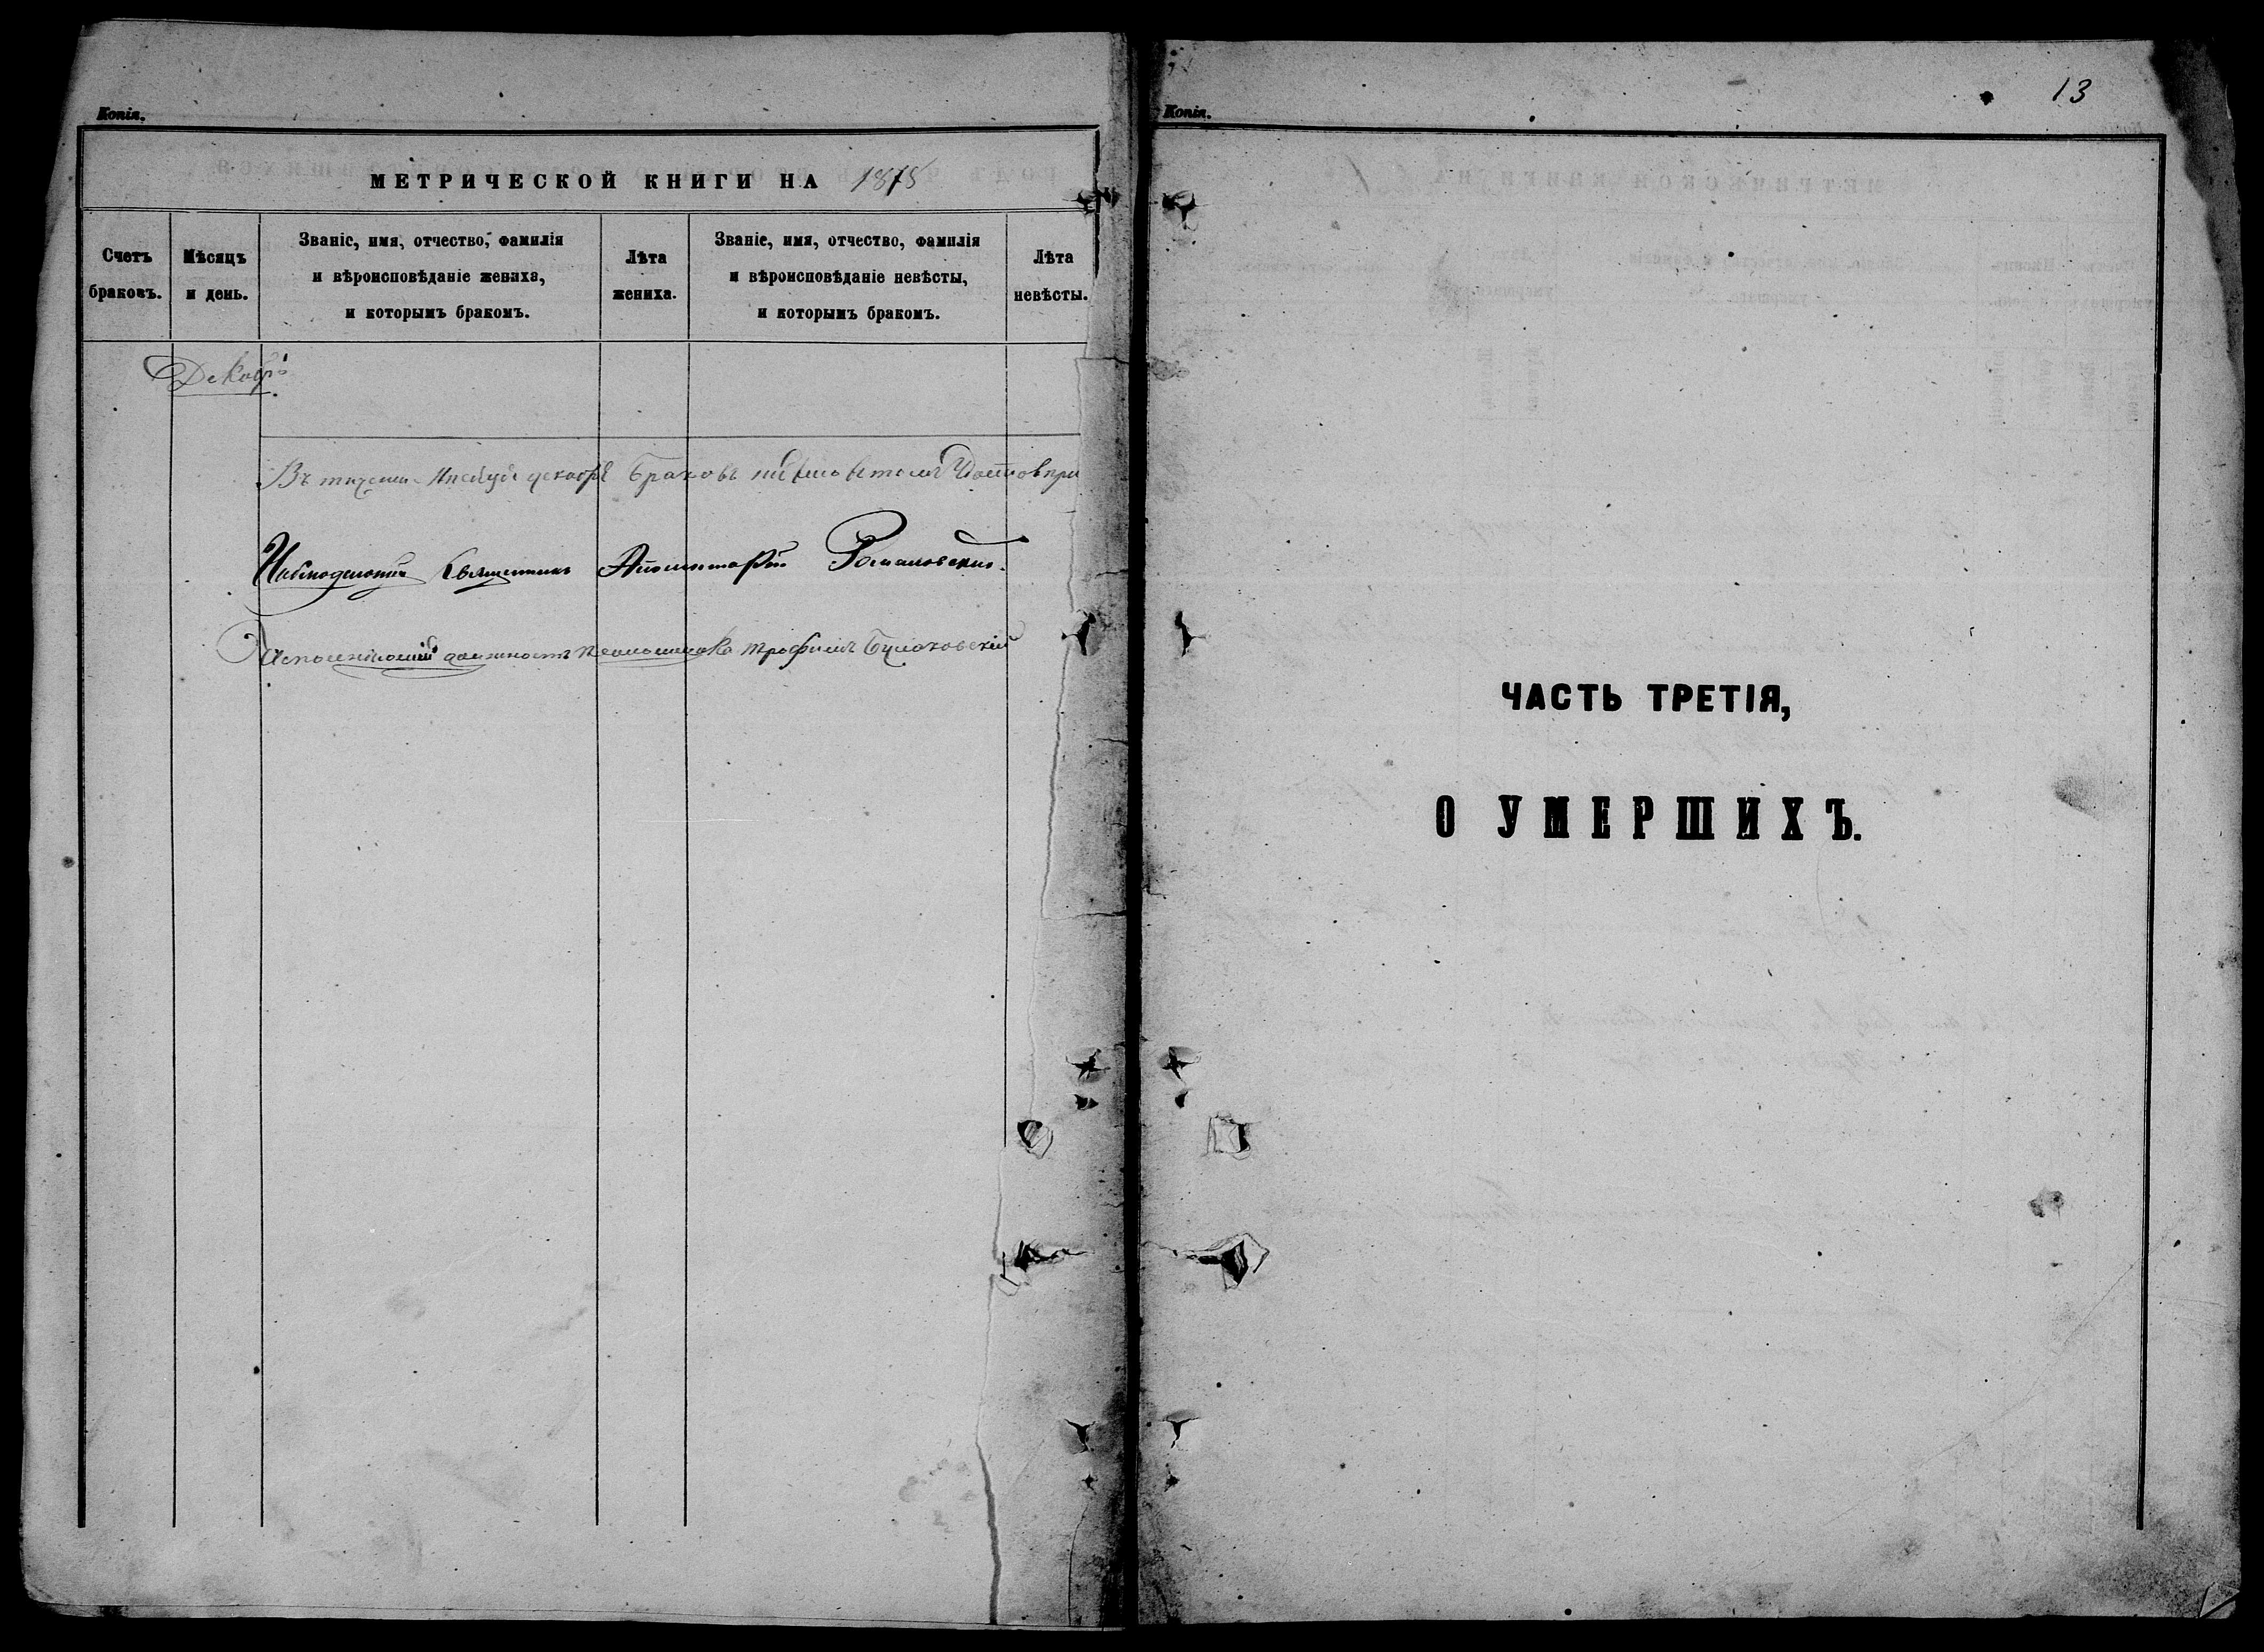 Копія.
МЕТРИЧЕСКОЙ КНИГИ НА 1875
Счетъ браковъ.
Мѣсяцъ и день.
Званіе, имя, отчество, фамилія и вѣроисповѣданіе жениха, и которымъ бракомъ.
Лѣта жениха.
Званіе, имя, отчество, фамилія и вѣроисповѣданіе невѣсты, и которымъ бракомъ.
Лѣта невѣсты.
Декабрь
Въ декабрѣ браковъ небыло
Священникъ Романовскій
должность псаломщика Трофимъ
Копія.
13
ЧАСТЬ ТРЕТІЯ,
О УМЕРШИХЪ.